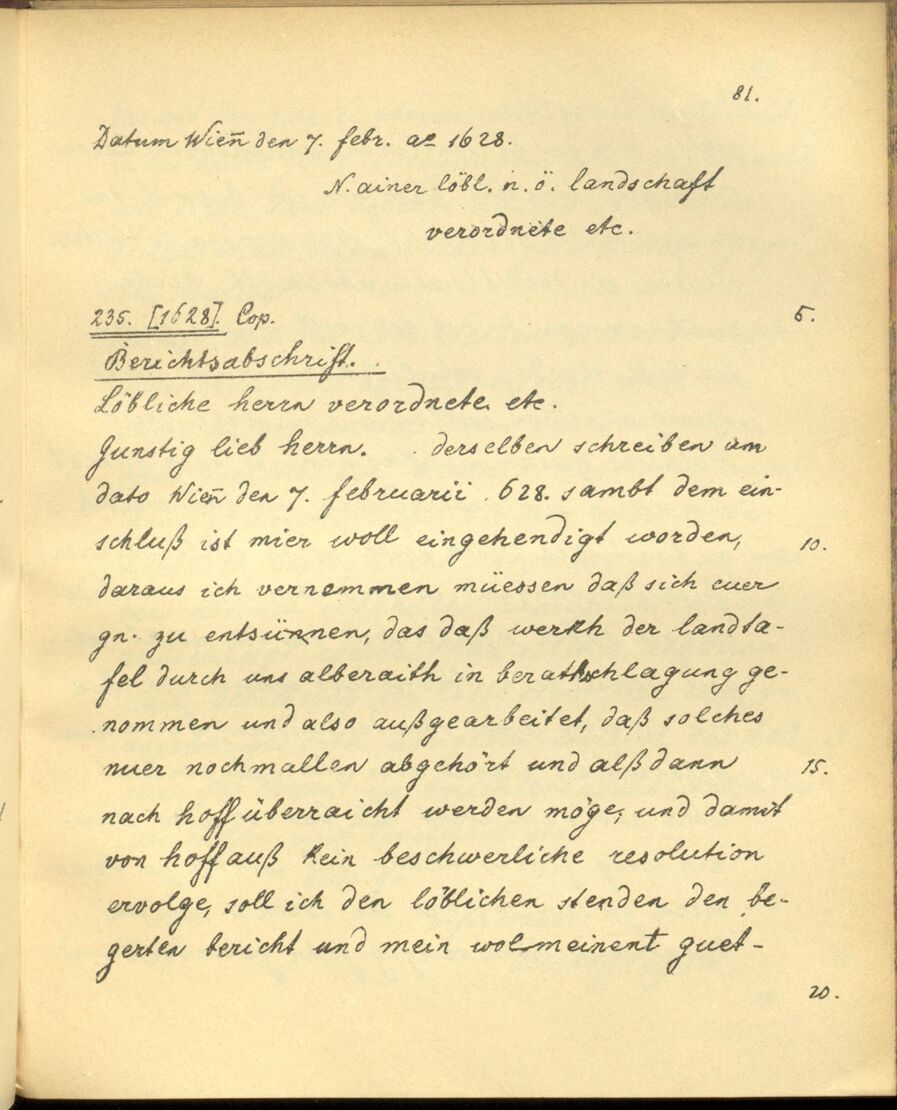 81.
Datum Wien̄ den 7. febr. ao 1628.
N. ainer löbl. n. ö. landschaft
verordnete etc.
235. [1628]. Cop. 5.
Berichtsabschrift.
Löbliche herrn verordnete etc.
Gunstig lieb herrn. . derselben schreiben am
dato Wien̄ den 7. februarii 628. sambt dem ein-
schluß ist mier woll eingehendigt worden, 10.
daraus ich vernemmen müessen daß sich euer
gn. zu entsünnen, das daß werkh der landta-
fel durch uns alberaith in berathschlagung ge-
nommen und also außgearbeitet, daß solches
nuer nochmallen abgehört und alß dann 15.
nach hoff überraicht werden möge, und damit
von hoff auß kein beschwerliche resolution
ervolge, soll ich den löblichen stenden den be-
gerten bericht und mein wolmeinent guet-
20.